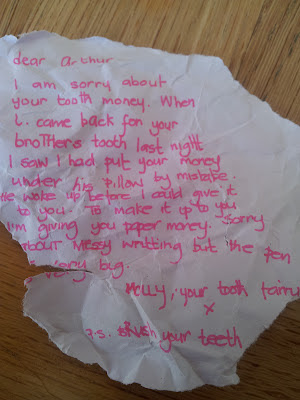 dear Arthur
I am sorry about
your tooth money. When
I. came back for your
broTHers tooth last night
I saw I had put your money
under his pillow by mistake.
He woke up before I could give it
to you. To make it up to you
I'm giving you paper money. Sorry
about messy writting but the pen
is very big.
Molly, your tooth fairy
x
P.S. BRUSH your teeth